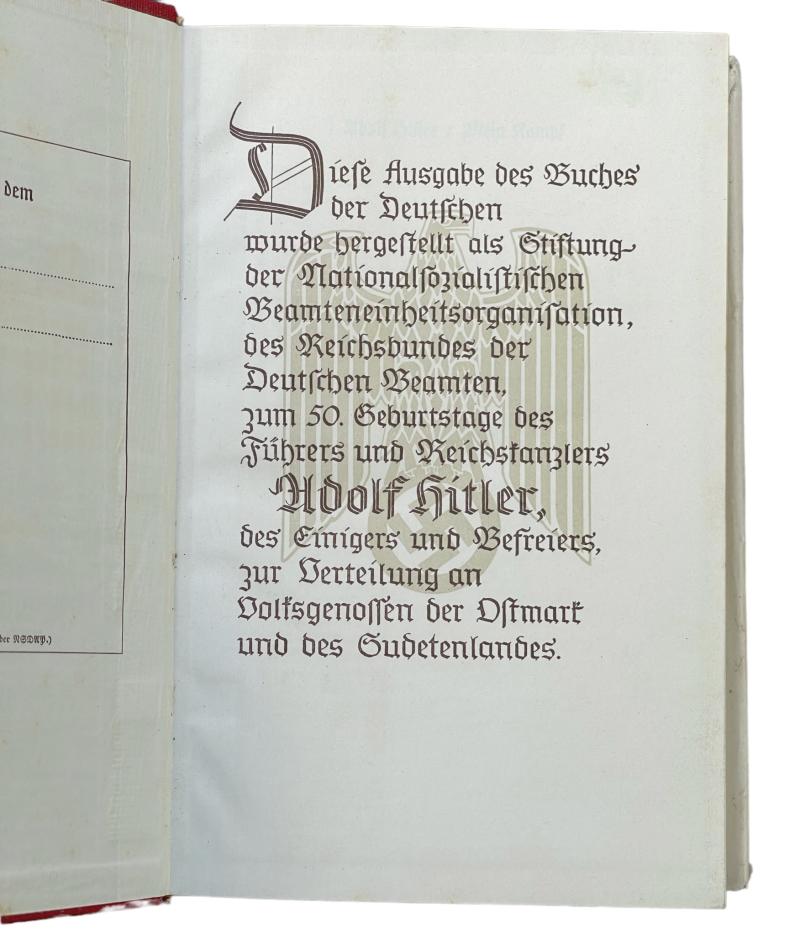 dem
der NSDAP.)
Diese Ausgabe des Buches
der Deutschen
wurde hergestellt als Stiftung
der Nationalsozialistischen
Beamteneinheitsorganisation,
des Reichsbundes der
Deutschen Beamten,
zum 50. Geburtstage des
Führers und Reichskanzlers
Adolf Hitler,
des Einigers und Befreiers,
zur Verteilung an
Volksgenossen der Ostmark
und des Sudetenlandes.